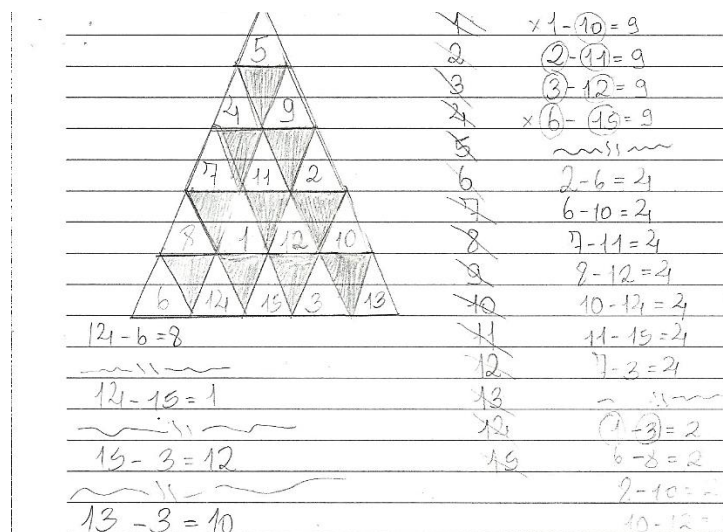 5
4 9
7 11 2
8 1 12 10
6 14 15 3 13
14-6=8
14-15=1
15-3=12
13-3=10
1
2
3
4
5
6
7
8
9
10
11
12
13
14
15
×1-10=9
2-11=9
3-12=9
×6-15=9
2-6=4
6-10=4
7-11=4
8-12=4
10-14=4
11-15=4
7-3=4
1-3=2
6-8=2
-10=
10-12=